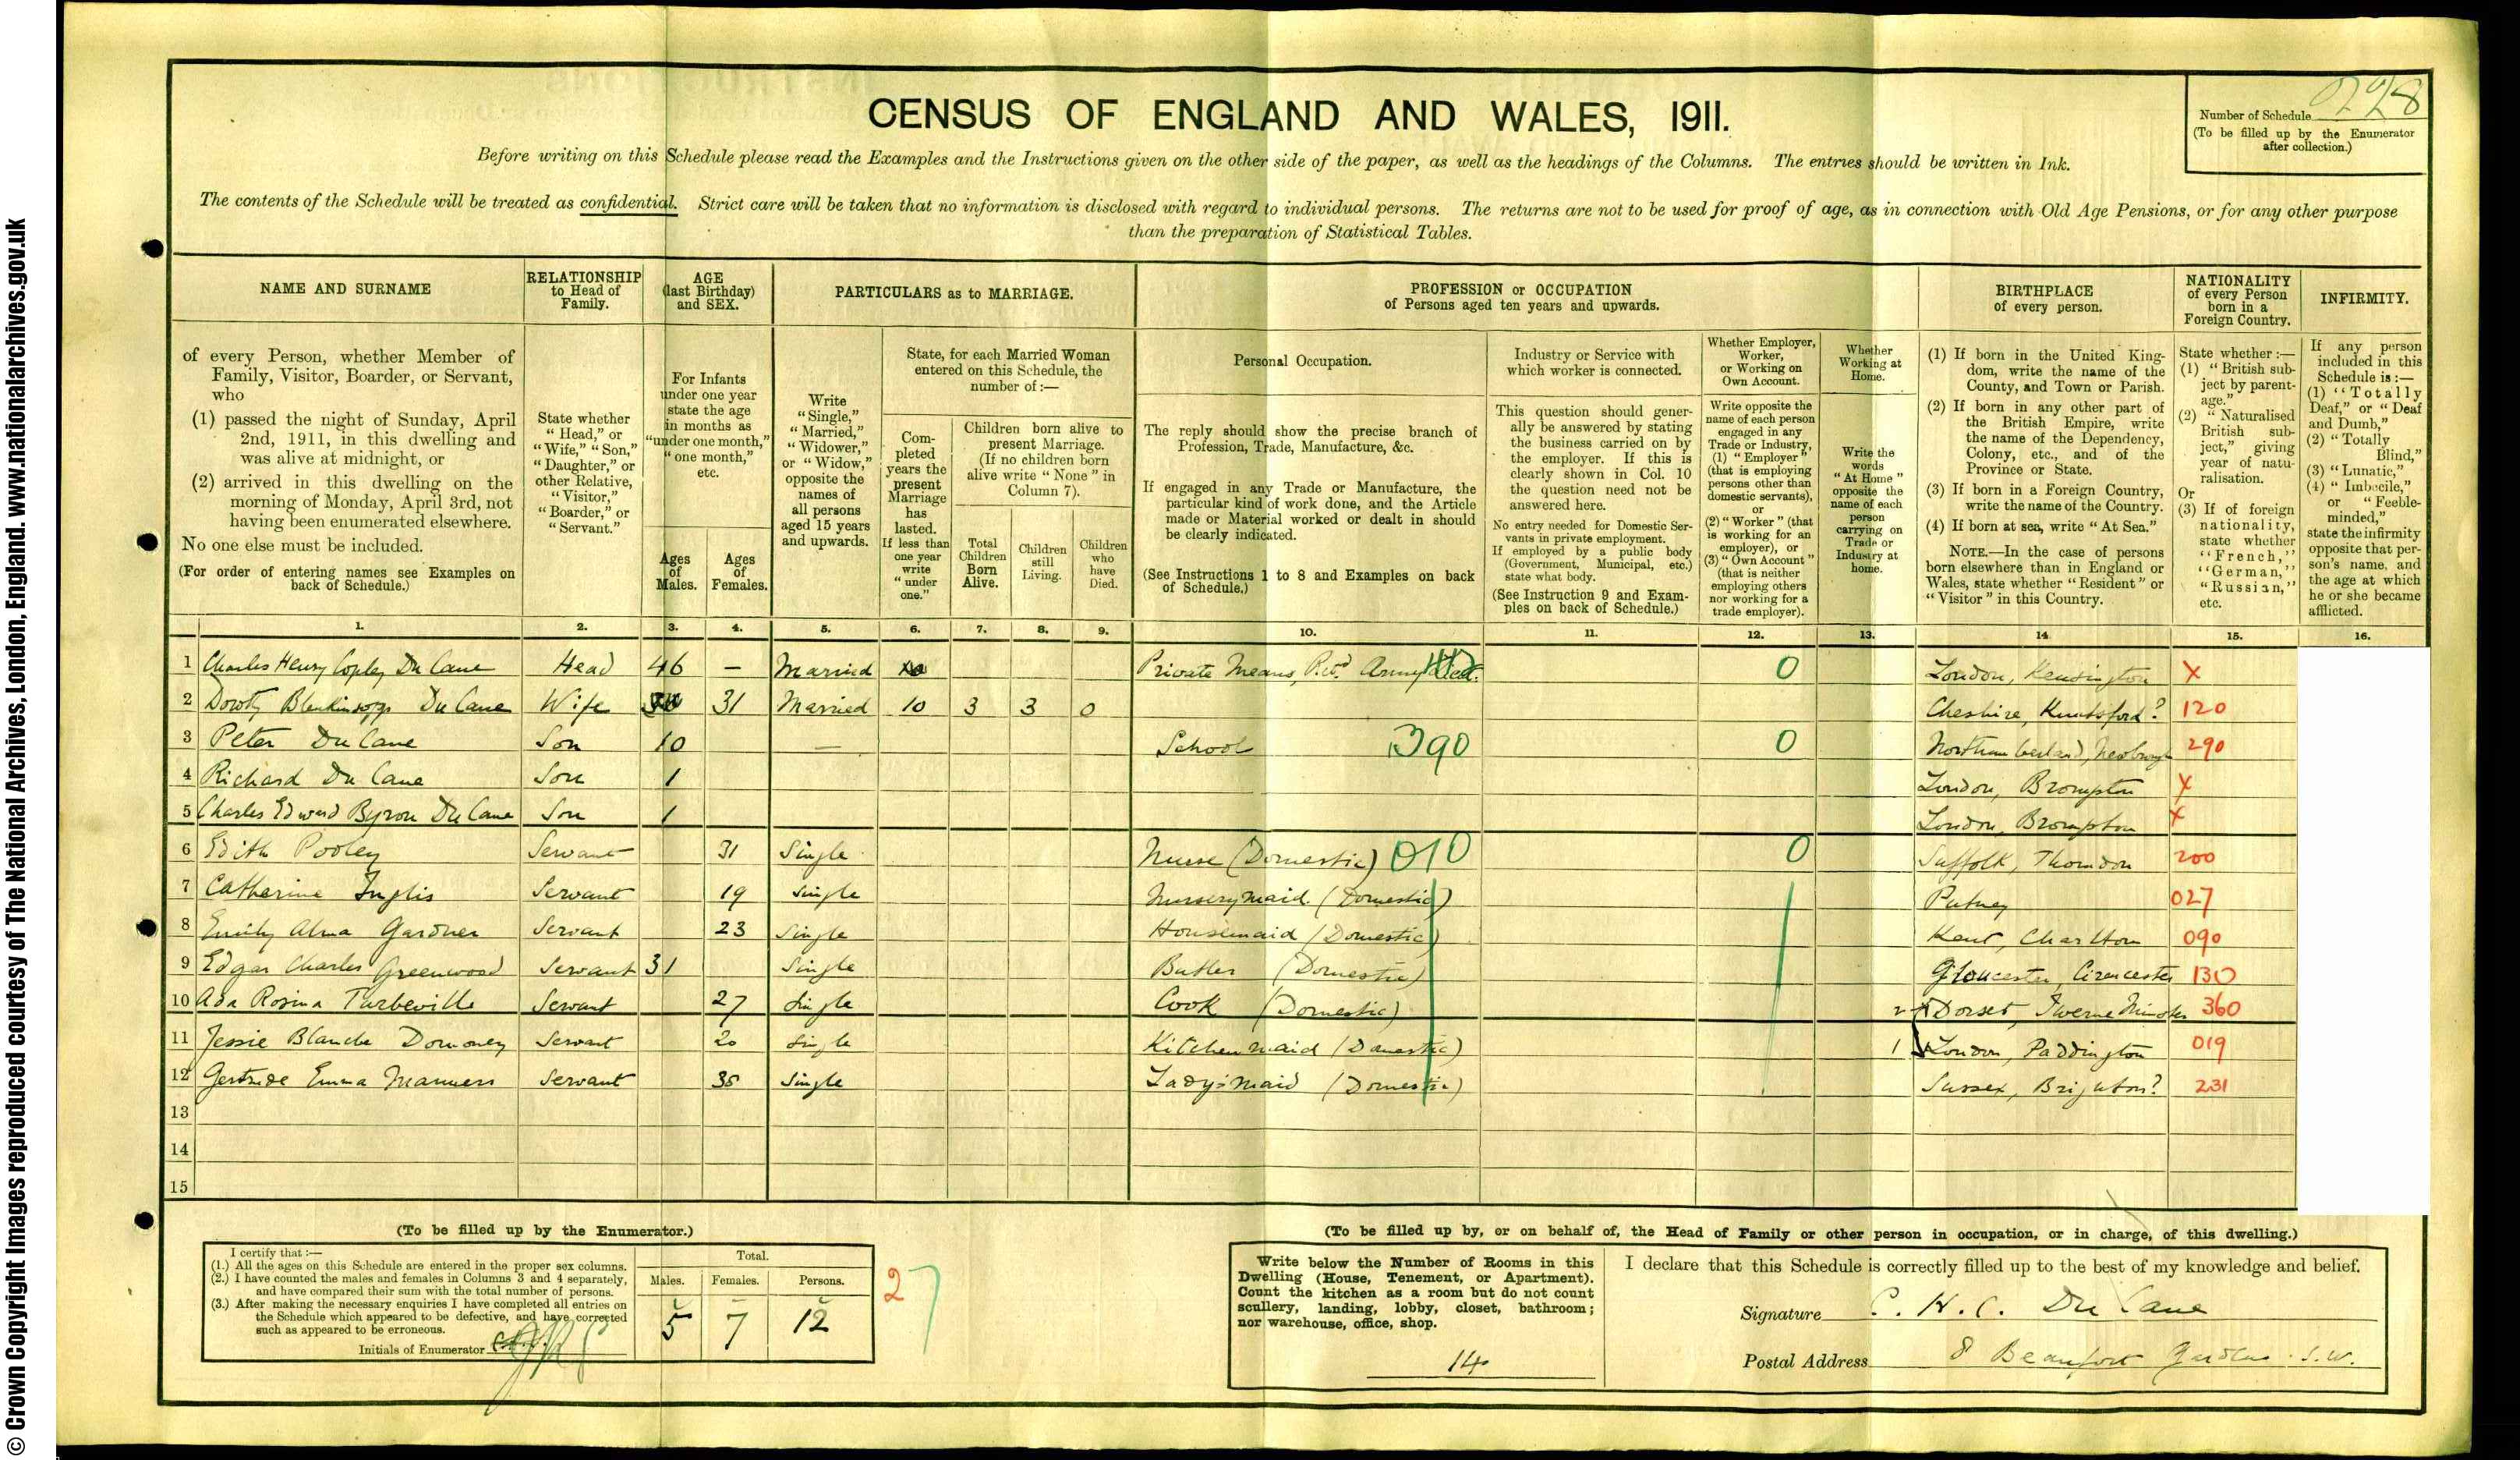 © Crown Copyright Images reproduced courtesy of The National Archives, London, England. www.nationalarchives.gov.uk
CENSUS OF ENGLAND AND WALES, 1911.
Number of Schedule 228
(To be filled up by the Enumerator after collection.)
Before writing on this Schedule please read the Examples and the Instructions given on the other side of the paper, as well as the headings of the Columns. The entries should be written in Ink.
The contents of the Schedule will be treated as confidential. Strict care will be taken that no information is disclosed with regard to individual persons. The returns are not to be used for proof of age, as in connection with Old Age Pensions, or for any other purpose
than the preparation of Statistical Tables.
NAME AND SURNAME
of every Person, whether Member of
Family, Visitor, Boarder, or Servant,
who
(1) passed the night of Sunday, April
2nd, 1911, in this dwelling and
was alive at midnight, or
(2) arrived in this dwelling on the
morning of Monday, April 3rd, not
having been enumerated elsewhere.
No one else must be included.
(For order of entering names see Examples on
back of Schedule.)
RELATIONSHIP
to Head of
Family.
State whether
"Head," or
"Wife," "Son,"
"Daughter," or
other Relative,
"Visitor,"
"Boarder," or
"Servant."
AGE
(last Birthday)
and SEX.
For Infants
under one year
state the age
in months as
"under one month,"
"one month,"
etc.
Ages
of
Males.
Ages
of
Females.
PARTICULARS as to MARRIAGE.
Write
"Single,"
"Married,"
"Widower,"
or "Widow,"
opposite the
names of
all persons
aged 15 years
and upwards.
State, for each Married Woman
entered on this Schedule, the
number of:—
Com-
pleted
years the
present
Marriage
has
lasted.
If less than
one year
write
"under
one."
Children born alive to
present Marriage.
(If no children born
alive write "None" in
Column 7).
Total
Children
Born
Alive.
Children
still
Living.
Children
who
have
Died.
PROFESSION or OCCUPATION
of Persons aged ten years and upwards.
Personal Occupation.
The reply should show the precise branch of
Profession, Trade, Manufacture, &c.
If engaged in any Trade or Manufacture, the
particular kind of work done, and the Article
made or Material worked or dealt in should
be clearly indicated.
(See Instructions 1 to 8 and Examples on back
of Schedule.)
Industry or Service with
which worker is connected.
This question should gener-
ally be answered by stating
the business carried on by
the employer. If this is
clearly shown in Col. 10
the question need not be
answered here.
No entry needed for Domestic Ser-
vants in private employment.
If employed by a public body
(Government, Municipal, etc.)
state what body.
(See Instruction 9 and Exam-
ples on back of Schedule.)
Whether Employer,
Worker,
or Working on
Own Account.
Write opposite the
name of each person
engaged in any
Trade or Industry,
(1) "Employer"
(that is employing
persons other than
domestic servants),
or
(2) "Worker" (that
is working for an
employer), or
(3) "Own Account"
(that is neither
employing others
nor working for a
trade employer).
Whether
Working at
Home.
Write the
words
"At Home"
opposite the
name of each
person
carrying on
Trade or
Industry at
home.
BIRTHPLACE
of every person.
(1) If born in the United King-
dom, write the name of the
County, and Town or Parish.
(2) If born in any other part of
the British Empire, write
the name of the Dependency,
Colony, etc., and of the
Province or State.
(3) If born in a Foreign Country,
write the name of the Country.
(4) If born at sea, write "At Sea."
NOTE.—In the case of persons
born elsewhere than in England or
Wales, state whether "Resident" or
"Visitor" in this Country.
NATIONALITY
of every Person
born in a
Foreign Country.
State whether:—
(1) "British sub-
ject by parent-
age."
(2) "Naturalised
British sub-
ject," giving
year of natu-
ralisation.
Or
(3) If of foreign
nationality,
state whether
"French,"
"German,"
"Russian,"
etc.
INFIRMITY.
If any person
included in this
Schedule is:—
(1) "Totally
Deaf," or "Deaf
and Dumb,"
(2) "Totally
Blind,"
(3) "Lunatic,"
(4) "Imbecile,"
or "Feeble-
minded,"
state the infirmity
opposite that per-
son's name, and
the age at which
he or she became
afflicted.
1. 2. 3. 4. 5. 6. 7. 8. 9. 10. 11. 12. 13. 14. 15. 16.
1 Charles Henry Copley Du Cane Head 46 — Married Private Means, Retd Army 0 London, Kensington X
2 Dorothy Blenkinsopp Du Cane Wife 31 Married 10 3 3 0 Cheshire, Knutsford? 120
3 Peter Du Cane Son 10 — School 390 0 Northumberland, Newbrough 290
4 Richard Du Cane Son 1 London, Brompton X
5 Charles Edward Byron Du Cane Son 1 London, Brompton X
6 Edith Pooley Servant 31 Single Nurse (Domestic) 010 0 Suffolk, Thorndon 200
7 Catherine Inglis Servant 19 Single Nurserymaid (Domestic) Putney 027
8 Emily Alma Gardner Servant 23 Single Housemaid (Domestic) Kent, Charlton 090
9 Edgar Charles Greenwood Servant 31 Single Butler (Domestic) Gloucester, Cirencester 130
10 Ada Rosina Turbeville Servant 27 Single Cook (Domestic) 2 Dorset, Iwerne Minster 360
11 Jessie Blanche Domoney Servant 20 Single Kitchenmaid (Domestic) 1 London, Paddington 019
12 Gertrude Emma Manners Servant 35 Single Lady's Maid (Domestic) Sussex, Brighton? 231
13
14
15
(To be filled up by the Enumerator.)
I certify that:—
(1.) All the ages on this Schedule are entered in the proper sex columns.
(2.) I have counted the males and females in Columns 3 and 4 separately,
and have compared their sum with the total number of persons.
(3.) After making the necessary enquiries I have completed all entries on
the Schedule which appeared to be defective, and have corrected
such as appeared to be erroneous.
Initials of Enumerator
Total.
Males. Females. Persons.
5 7 12
27
(To be filled up by, or on behalf of, the Head of Family or other person in occupation, or in charge, of this dwelling.)
Write below the Number of Rooms in this
Dwelling (House, Tenement, or Apartment).
Count the kitchen as a room but do not count
scullery, landing, lobby, closet, bathroom;
nor warehouse, office, shop.
14
I declare that this Schedule is correctly filled up to the best of my knowledge and belief.
Signature C. H. C. Du Cane
Postal Address 8 Beaufort Gardens. S.W.